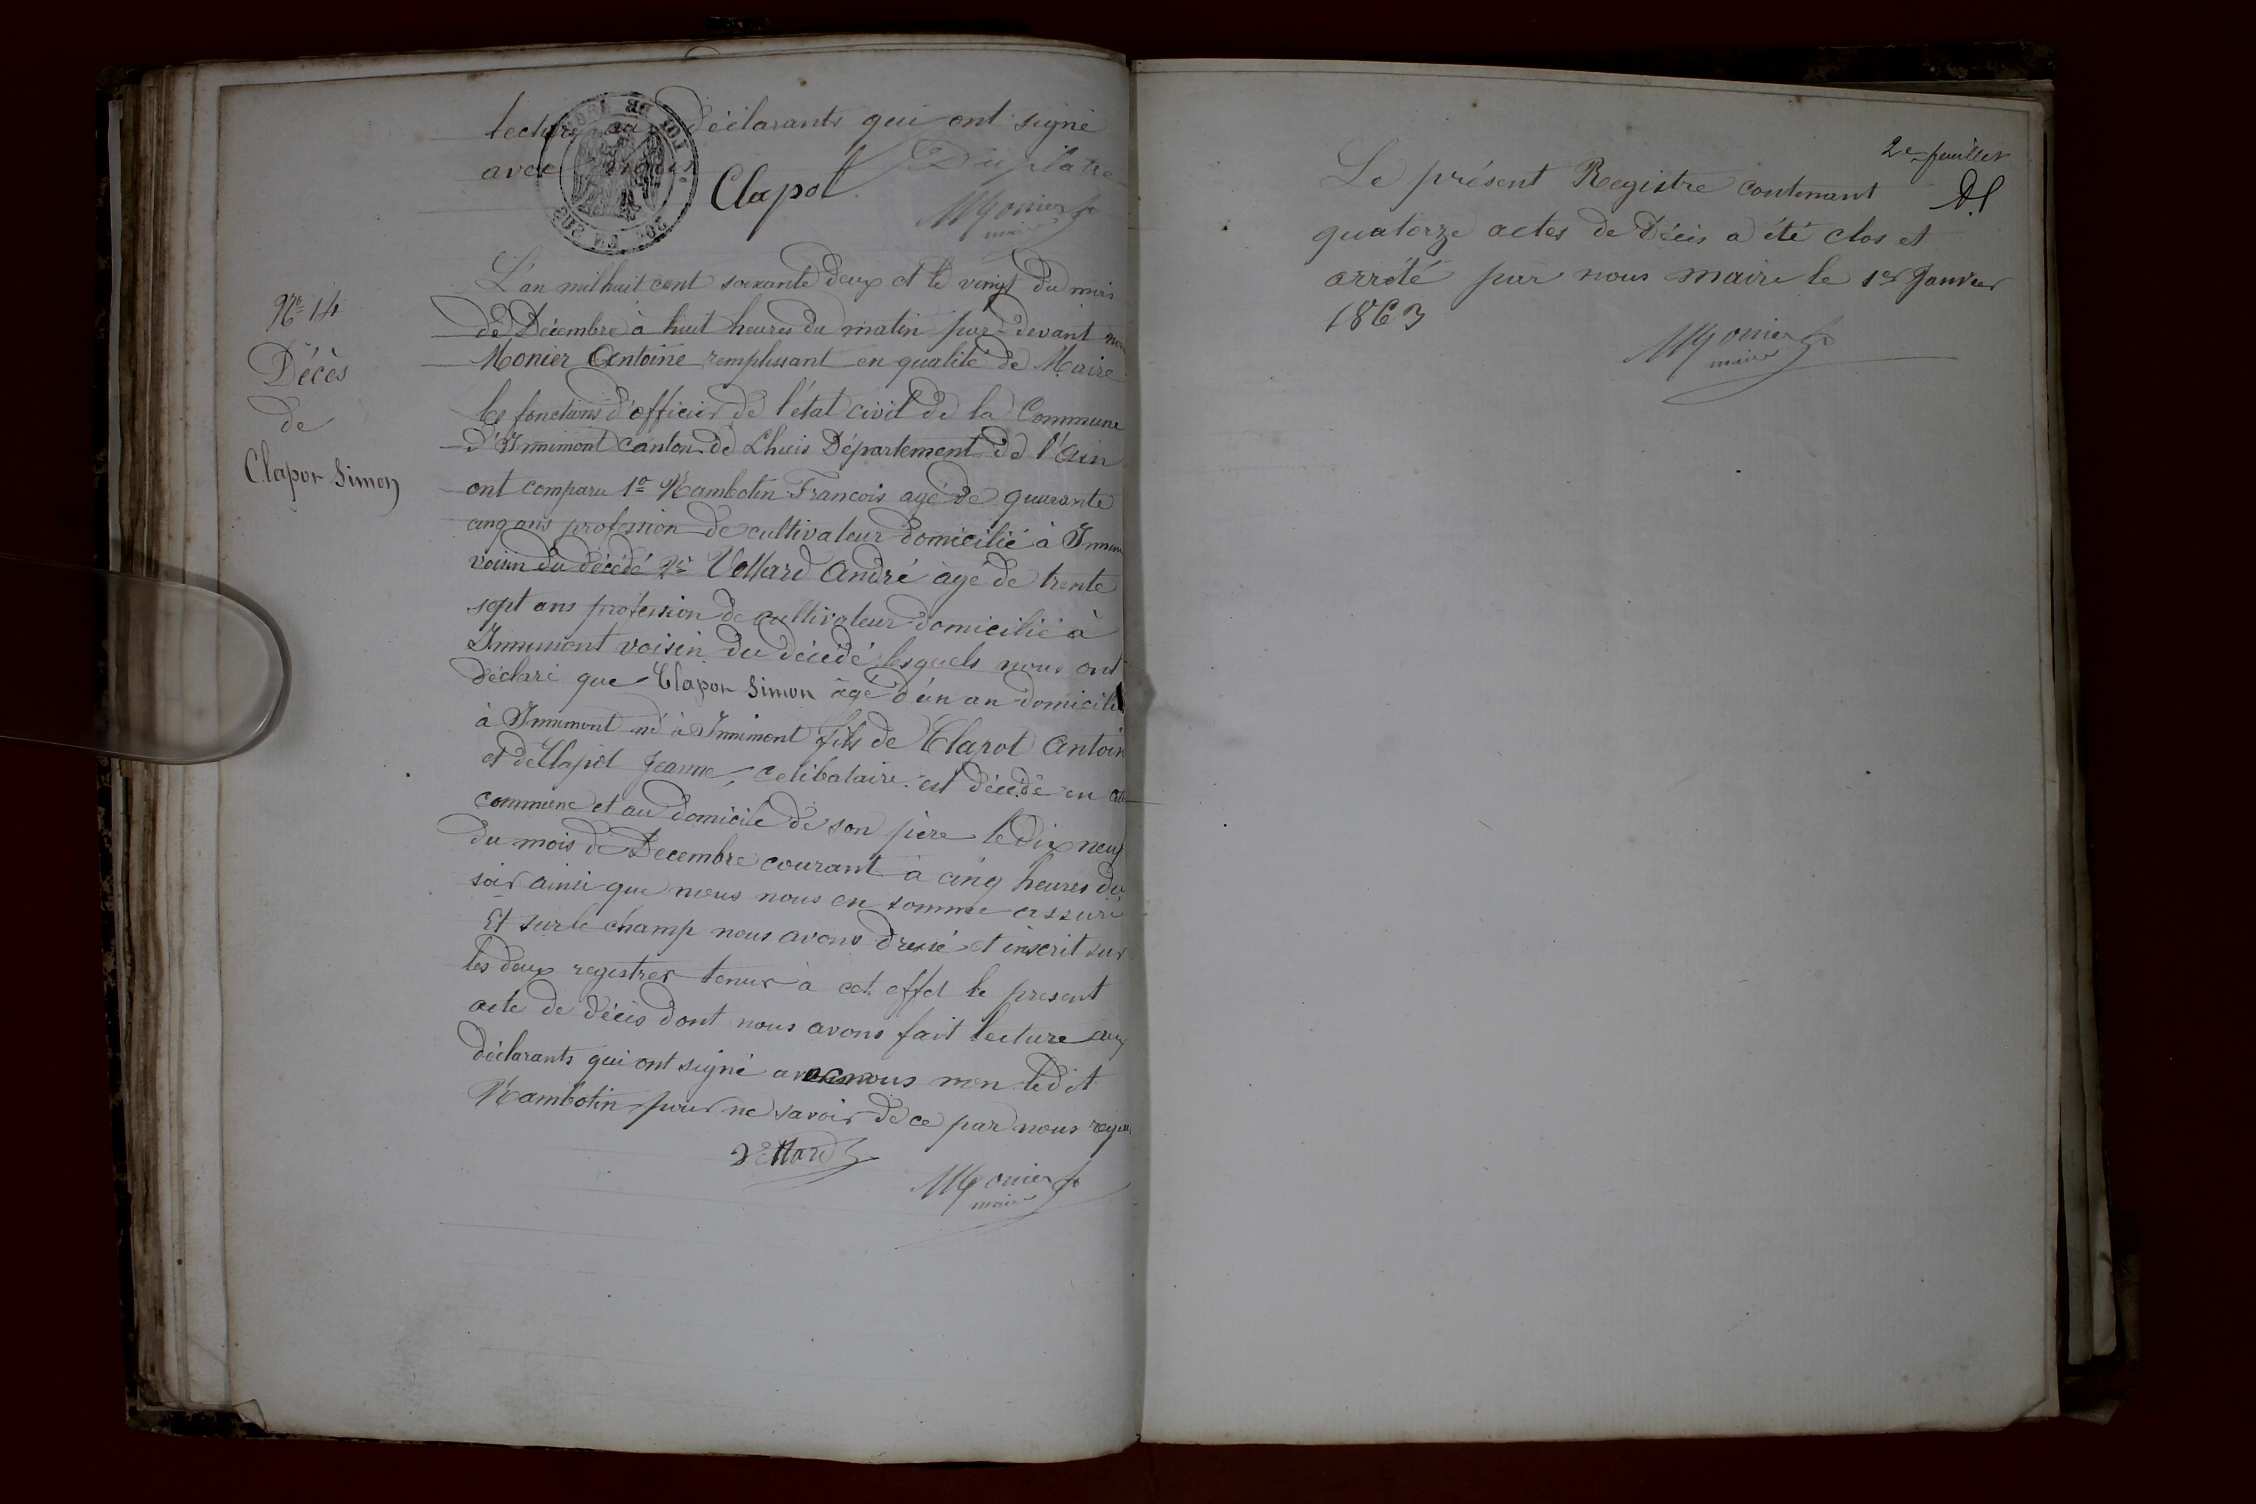 lecture aux déclarants qui ont signé
avec nous
Clapot Duplatre
Monier
maire
Nº 14
Décès
de
Clapot Simon
L'an mil huit cent soixante deux et le vingt du mois
de Décembre à huit heures du matin par-devant nous
Monier Antoine remplissant en qualité de Maire
les fonctions d'officier de l'état civil de la Commune
d'Innimont canton de Lhuis Département de l'Ain
ont comparu 1º Rambotin Francois agé de quarante
cinq ans profession de cultivateur domicilié à Innim
voisin du décédé 2º Vettard André âgé de trente
sept ans profession de cultivateur domicilié à
Innimont voisin du décédé lesquels nous ont
déclaré que Clapot Simon âgé d'un an domicilié
à Innimont né à Innimont fils de Clapot Antoin
et de Clapot Jeanne, celibataire est décédé en
commune et au domicile de son père le dix neuf
du mois de Decembre courant à cinq heures du
soir ainsi que nous nous en somme assuré
Et sur le champ nous avons dressé et inscrit sur
les deux registres tenus à cet effet le present
acte de décès dont nous avons fait lecture aux
déclarants qui ont signé avec nous non ledit
Rambotin pour ne savoir de ce par nous requi
Vettard
Monier
maire
2e feuillet
Le présent Registre contenant
quatorze actes de Décès a été clos et
arrêté par nous maire le 1er Janvier
1863
Monier
maire